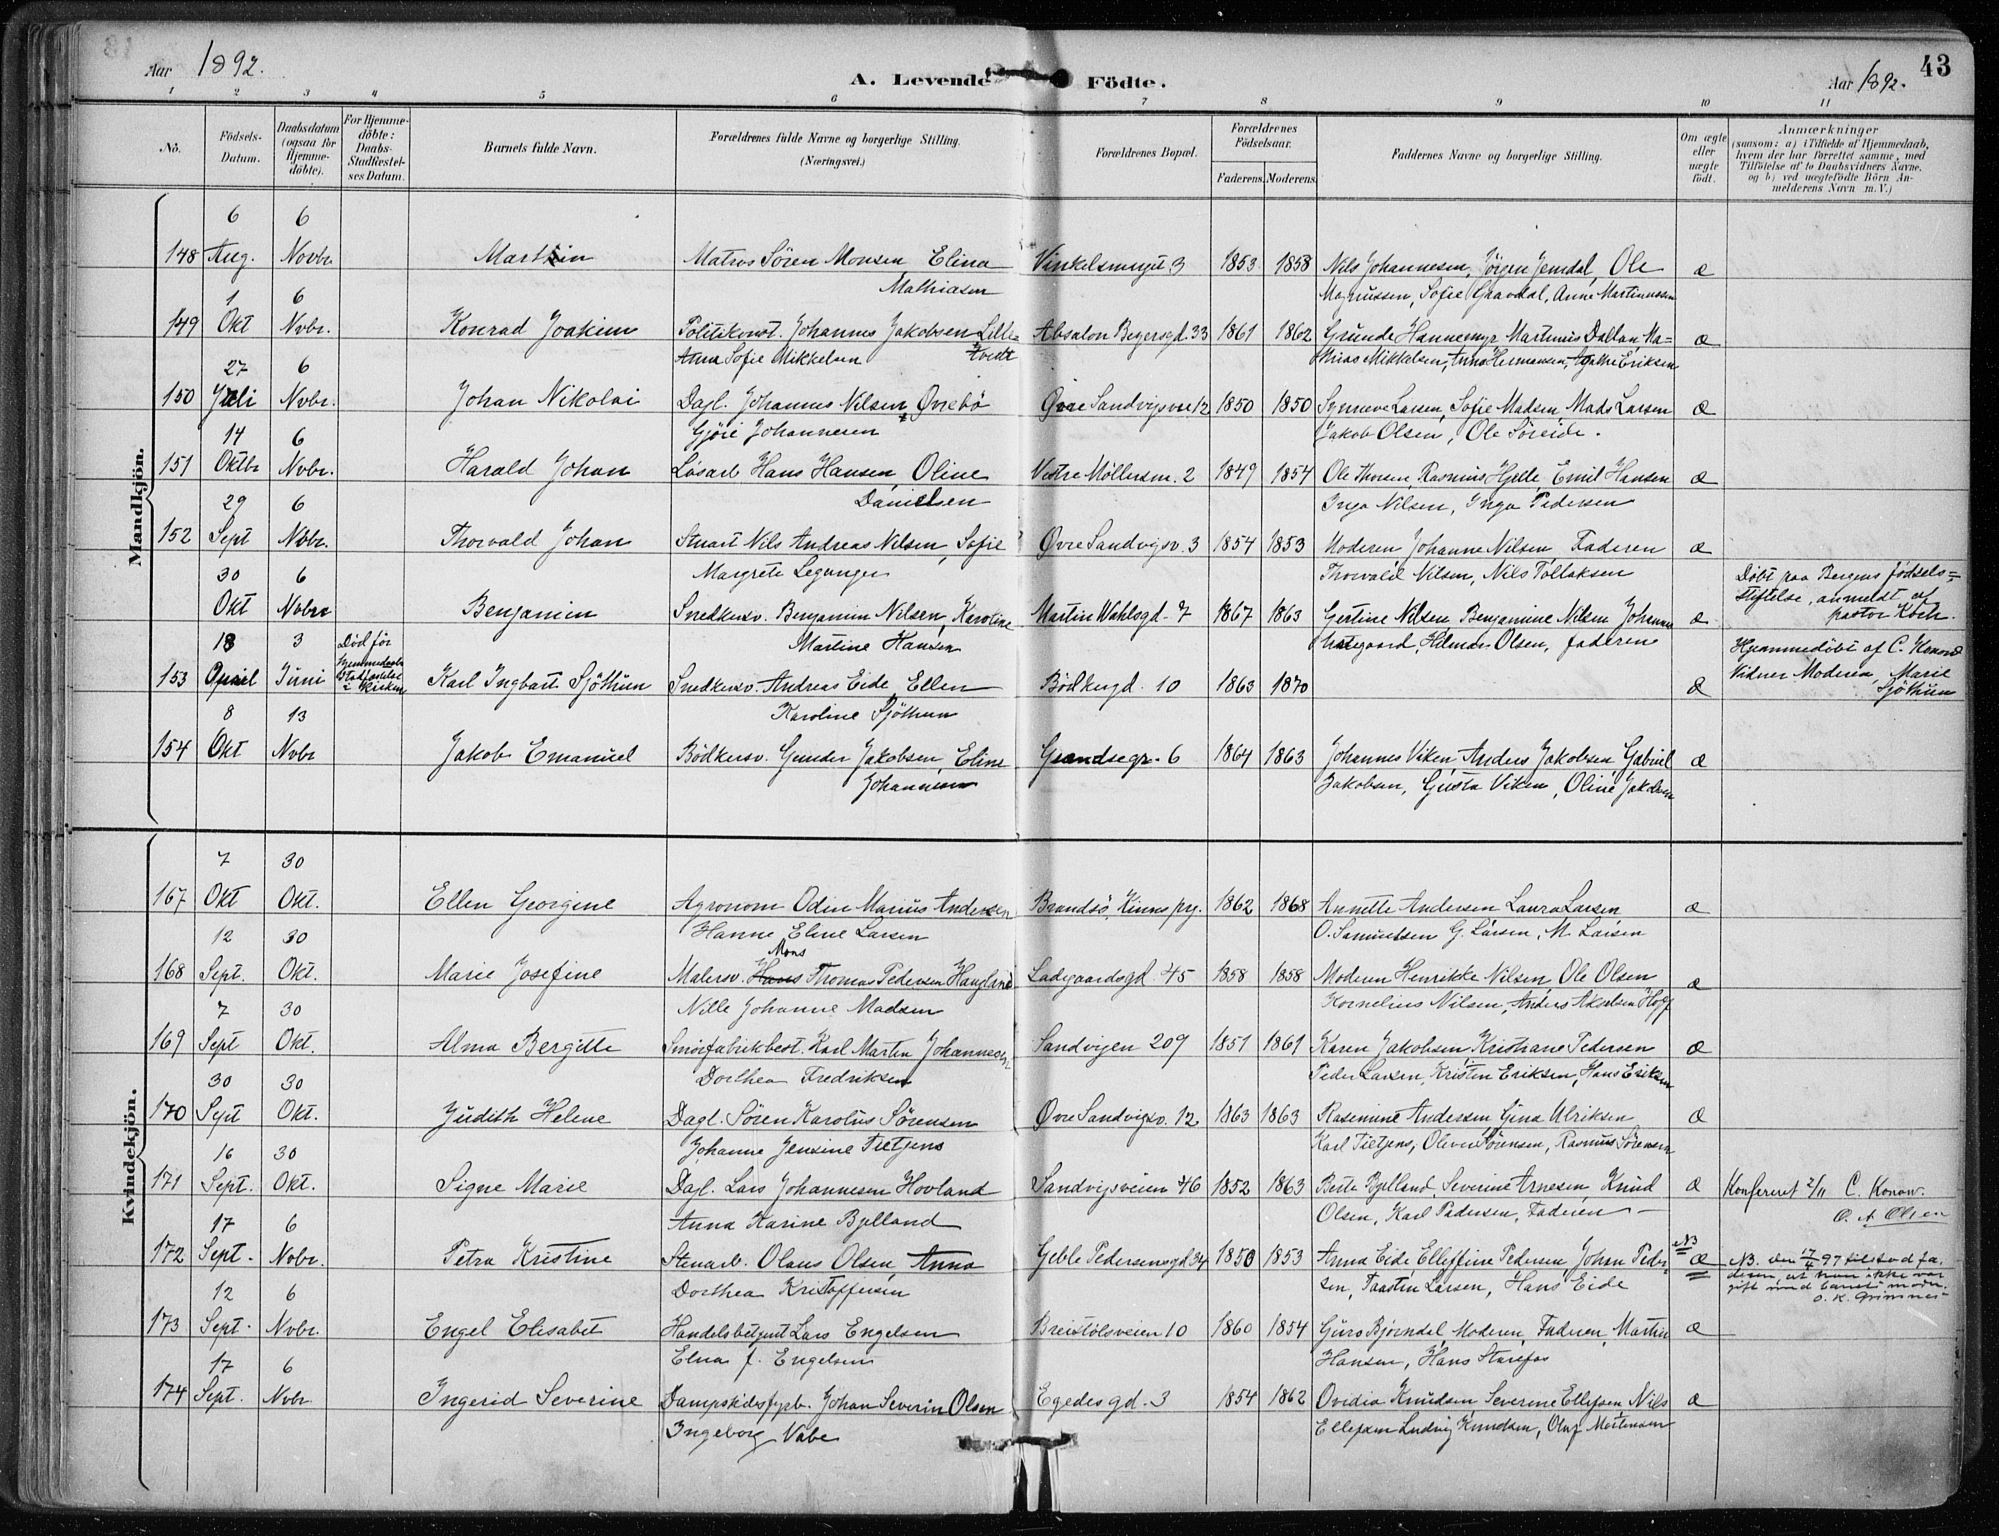 Aar 1892.
A. Levende Födte.
Aar 1892.
43
1 2 3 4 5 6 7 8 9 10 11
No.
Födsels-Datum.
Daabsdatum (ogsaa for Hjemme-döbte).
For Hjemme-döbte: Daabs-Stadfæstel-ses Datum.
Barnets fulde Navn.
Forældrenes fulde Navne og borgerlige Stilling. (Næringsvei.)
Forældrenes Bopæl.
Forældrenes Födselsaar.
Faderens. Moderens.
Faddernes Navne og borgerlige Stilling.
Om ægte eller uægte födt.
Anmærkninger
(saasom: a) i Tilfælde af Hjemmedaab, hvem der har forrettet samme, med Tilföielse af to Daabsvidners Navne, og b) ved uægtefödte Börn An-melderens Navn m. V.)
Mandkjön.
148 6 Aug. 6 Novbr. Martin Matros Sören Monsen Elina Vinkelsmuget 3 1853 1858 Nils Johannesen, Jörgen Jemdal, Ole æ
Mathiasen Magnussen, Sofie Graavdal, Anne Martinussen
149 1 Okt 6 Nvbr. Konrad Joakim Politikonst. Johannes Jakobsen Lille= Absalon Beyersgd. 33 1861 1862 Grunde Hannemyr Martinus Dallan, Ma= æ
Anna Sofie Mikkelsen Kvedt thias Mikkelsen, Anna Hermansen, Agathe Eriksen
150 27 Juli 6 Nvbr. Johan Nikolai Dagl. Johannes Nilsen Övrebö Övre Sandvigsvei 12 1850 1850 Synneve Larsen, Sofie Madsen Mads Larsen æ
Gjöri Johannesen Jakob Olsen, Ole Söreide.
151 14 Oktbr 6 Nvbr. Harald Johan Lösarb Hans Hansen, Oline Vestre Möllersm. 2 1849 1854 Ole Thorsen, Rasmus Hjelle Emil Hansen æ
Danielsen Inga Nilsen, Inga Pedersen
152 29 Sept 6 Nvbr. Thorvald Johan Stuart Nils Andreas Nilsen, Sofie Övre Sandvigsv. 3 1854 1853 Moderen Johanne Nilsen, Faderen æ
Margrete Leganger Thorvald Nilsen, Nils Tollaksen
30 Okt 6 Nvbr Benjamin Snedkersv. Benjamin Nilsen, Karoline Martin Wahlsgd. 7 1867 1863 Gertine Nilsen, Benjamine Nilsen Johannes æ Döbt paa Bergens födsels= stiftelse, anmeldt af pastor Koch.
Martine Hansen Hilmar Olsen, faderene
153 18 April 3 Juni Död før hjemmedaabs Stadfæstelse i Kirken Karl Ingbart Sjöthun Snedkersv. Andreas Eide, Ellen Bödkergd. 10 1863 1870 æ Hjemmedöbt af C. Konow Vidner Moderen, Marie Sjöthun
Karoline Sjöthun
154 8 Okt 13 Nvbr Jakob Emanuel Bödkersv. Gunder Jakobsen, Eline Grandsegr. 6 1864 1863 Johannes Viken, Anders Jakobsen, Gabriel æ
Johannesen Jakobsen, Gusta Viken, Oline Jakobsen
Kvindekjön.
167 7 Okt 30 Okt. Ellen Georgine Agronom Odin Marius Andersen Brandsö, Kinns prg. 1862 1868 Annette Andersen Laura Larsen æ
Hanne Eline Larsen O. Samuelsen G. Larsen, M. Larsen
168 12 Sept. 30 Okt. Marie Josefine Malersv. Hans Mons Thomas Pedersen Haugland Ladegaardsgd. 45 1858 1858 Moderen Henrikke Nilsen, Ole Olsen æ
Nille Johanne Madsen Kornelius Nilsen, Anders Akselsen Hoff
169 7 Sept 30 Okt. Alma Bergitte Smörfabrikbest. Karl Martin Johannesen Sandvigen 209 1851 1861 Karen Jakobsen, Kristiane Pedersen æ
Dorthea Fredriksen Peder Larsen, Kristin Eriksen, Hans Eriksen
170 30 Sept 30 Okt. Judith Helene Dagl. Sören Karolus Sörensen Övre Sandvigsv. 12 1863 1863 Rasmine Andersen Gina Ulriksen æ
Johanne Jensine Tietjens Karl Tietjens, Oliver Sörensen, Rasmus Sörensen
171 16 Sept. 30 Okt. Signe Marie Dagl. Lars Johannesen Hovland Sandvigsveien 46 1852 1863 Berte Bjelland, Severine Arnesen, Knud æ Konfereret 2/11 C. Konow.
Anna Karine Bjelland Olsen, Karl Pedersen, Faderen — O. A. Olsen
172 17 Sept. 6 Nvbr. Petra Kristine Stenarb. Olaus Olsen, Anna Geble Pedersensgd 34 1850 1853 Anna Eide Elleffine Pedersen, Johan Peder- NB æ NB. den 17/4 97 tilstod fa-
Dorthea Kristoffersen sen, Taasten Larsen, Hans Eide deren, at han ikke var gift med barnets moder. O. K. Grimnes
173 12 Sept. 6 Nvbr. Engel Elisabet Handelsbetjent Lars Engelsen Breistölsveien 10 1860 1854 Guro Bjørndal, Moderen, Faderen, Martin æ
Elna f. Engelsen Hansen, Hans Starefos
174 17 Sept. 6 Nvbr. Ingerid Severine Dampskibsfyrb. Johan Severin Olsen Egedes gd. 3 1854 1862 Ovidia Knudsen, Severine Ellefsen, Nils æ
Ingeborg Vabe Ellefsen Ludvig Knudsen, Oluf Mortensen